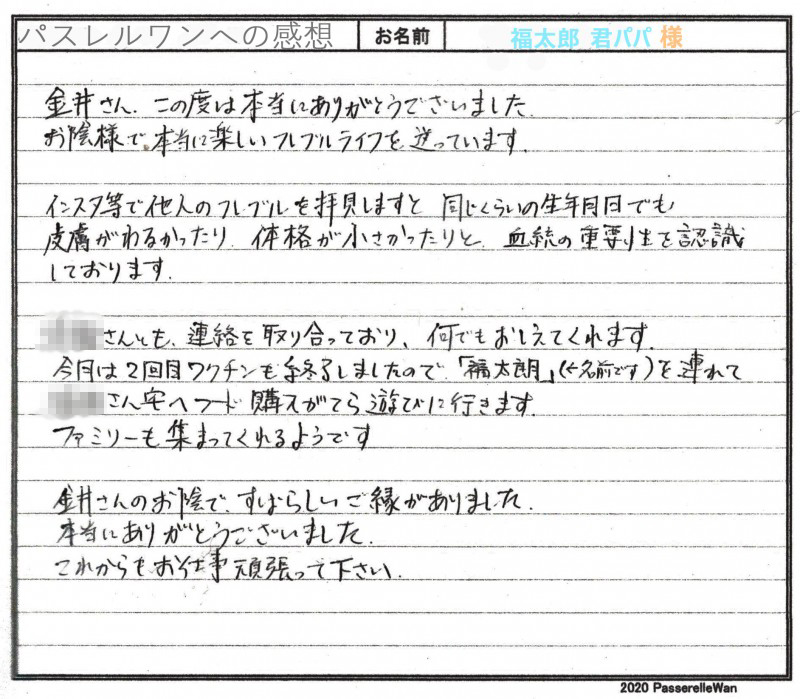 パスレルワンへの感想 お名前 福太郎 君パパ 様
金井さん、この度は本当にありがとうございました.
お陰様で、本当に楽しいフレブルライフを送っています.
インスタ等で他人のフレブルを拝見しますと 同じくらいの生年月日でも
皮膚がわるかったり、体格が小さかったりと、血統の重要性を認識
しております.
さんとも、連絡を取り合っており、何でもおしえてくれます.
今月は2回目ワクチンも終了しましたので、「福太朗」(←名前です)を連れて
さん宅へフード購入がてら遊びに行きます.
ファミリーも集まってくれるようです
金井さんのお陰で、すばらしいご縁がありました.
本当にありがとうございました.
これからもお仕事頑張って下さい.
2020 PasserelleWan